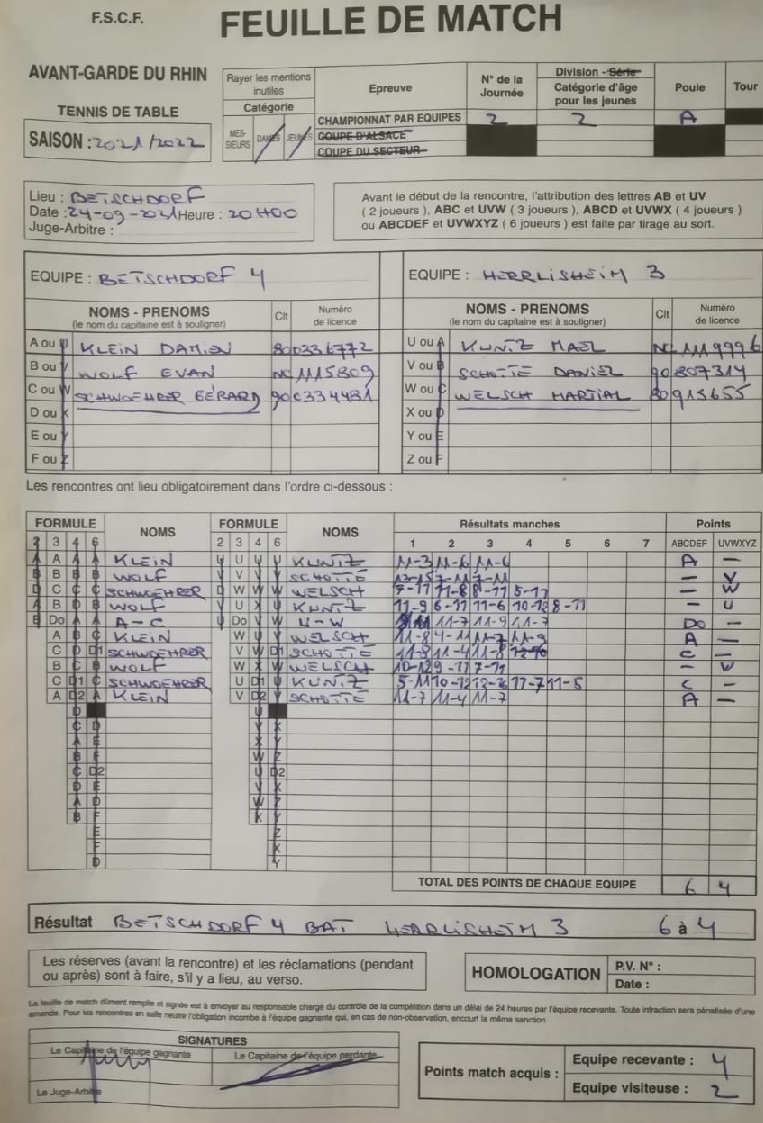 F.S.C.F. FEUILLE DE MATCH
AVANT-GARDE DU RHIN
TENNIS DE TABLE
SAISON : 2021/2022
Rayer les mentions inutiles
Catégorie
MESSIEURS DAMES JEUNES
Epreuve
CHAMPIONNAT PAR EQUIPES
COUPE D'ALSACE
COUPE DU SECTEUR
N° de la Journée
2
Division - Série
Catégorie d'âge pour les jeunes
2
Poule
A
Tour
Lieu : BETSCHDORF
Date : 24-09-2021 Heure : 20H00
Juge-Arbitre :
Avant le début de la rencontre, l'attribution des lettres AB et UV
( 2 joueurs ), ABC et UVW ( 3 joueurs ), ABCD et UVWX ( 4 joueurs )
ou ABCDEF et UVWXYZ ( 6 joueurs ) est faite par tirage au sort.
EQUIPE : BETSCHDORF 4
NOMS - PRENOMS (le nom du capitaine est à souligner) Clt Numéro de licence
A ou U KLEIN DAMIEN 80
B ou V WOLF EVAN NC 1115809
C ou W SCHWOEHRER GÉRARD 90
D ou X
E ou Y
F ou Z
EQUIPE : HERRLISHEIM 3
NOMS - PRENOMS (le nom du capitaine est à souligner) Clt Numéro de licence
U ou A KUNTZ MAEL NC 1119996
V ou B SCHOTTE DANIEL 90 807314
W ou C WELSCH MARTIAL 80 915655
X ou D
Y ou E
Z ou F
Les rencontres ont lieu obligatoirement dans l'ordre ci-dessous :
FORMULE NOMS FORMULE NOMS Résultats manches Points
2 3 4 6 2 3 4 6 1 2 3 4 5 6 7 ABCDEF UVWXYZ
A A A A KLEIN U U U U KUNTZ 11-3 11-6 11-6 A —
B B B B WOLF V V V V SCHOTTE 13-15 7-11 7-11 — V
C C C SCHWOEHRER W W W WELSCH 7-11 11-8 8-11 5-11 — W
A B D B WOLF V U X U KUNTZ 11-9 6-11 11-6 10-12 8-11 — U
B Do A A A-C U Do V W U-W 11-7 11-9 11-7 Do —
A B C KLEIN W U Y WELSCH 11-8 4-11 11-7 11-9 A —
C D D1 SCHWOEHRER V W D1 SCHOTTE 11-8 11-4 11-8 C —
B C B WOLF W X W WELSCH 10-12 9-11 7-11 — W
C D1 C SCHWOEHRER U D1 U KUNTZ 5-11 10-12 12-2 11-7 11-5 C —
A D2 A KLEIN V D2 Y SCHOTTE 11-7 11-4 11-7 A —
D U
C D Y X
A E X Y
B F W Z
C D2 U D2
D E V X
A D W Z
B F X Y
E Z
F X
D Y
TOTAL DES POINTS DE CHAQUE EQUIPE 6 4
Résultat BETSCHDORF 4 BAT HERRLISHEIM 3 6 à 4
Les réserves (avant la rencontre) et les réclamations (pendant
ou après) sont à faire, s'il y a lieu, au verso.
HOMOLOGATION
P.V. N° :
Date :
La feuille de match dûment remplie et signée est à envoyer au responsable chargé du contrôle de la compétition dans un délai de 24 heures par l'équipe recevante. Toute infraction sera pénalisée d'une
amende. Pour les rencontres en salle neutre l'obligation incombe à l'équipe gagnante qui, en cas de non-observation, encourt la même sanction
SIGNATURES
Le Capitaine de l'équipe gagnante Le Capitaine de l'équipe perdante
Le Juge-Arbitre
Points match acquis :
Equipe recevante : 4
Equipe visiteuse : 2